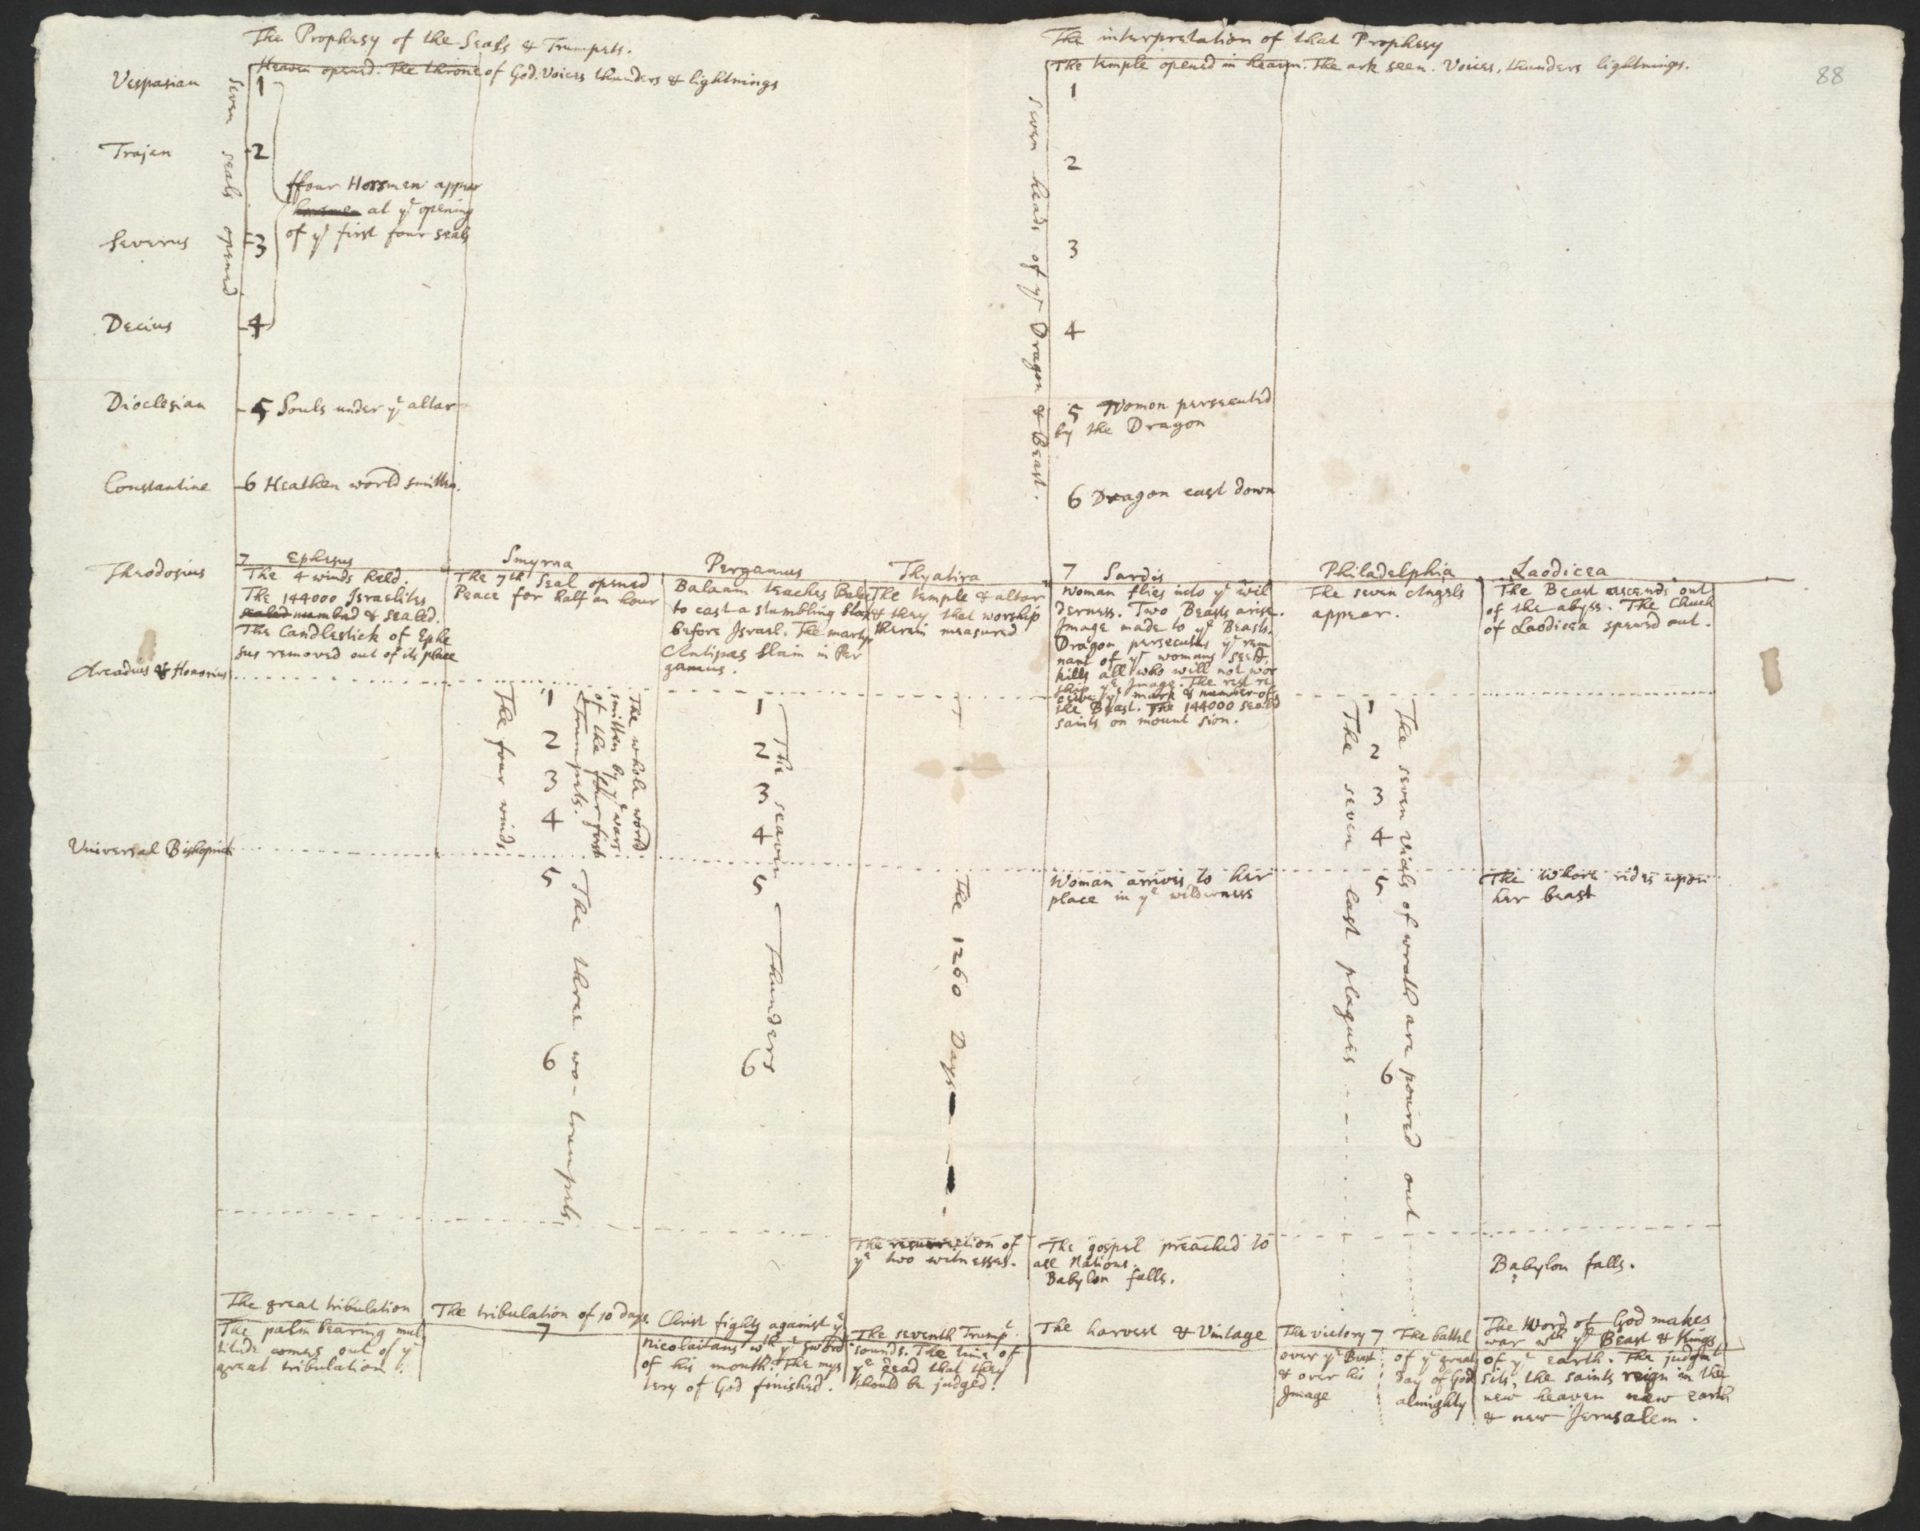 The Prophesy of the Seals & Trumpets.
Heaven opened. The throne of God. Voices thunders & lightnings
Vespasian
1
Trajan
2
Severus
3
Decius
4
Seven seals opened
ffour Horsmen appear
at yᵉ opening
of yᵉ first four seals
Dioclesian
5 Souls under yᵉ altar
Constantine
6 Heathen world smitten.
The interpretation of that Prophesy
The temple opened in heaven. The ark seen. Voices, thunders lightnings.
88
seven heads of yᵉ Dragon & Beast.
1
2
3
4
5 Woman persecuted
by the Dragon
6 Dragon cast down
Theodosius
7 Ephesus
The 4 winds held.
The 144000 Israelites
sealed numbred & sealed.
The Candlestick of Ephe
sus removed out of its place
Smyrna
The 7th Seal opened
Peace for half an hour
Pergamus
Balaam teaches Balac
to cast a stumbling block
before Israel. The martyr
Antipas slain in Per
gamus.
Thyatira
The temple & altar
& they that worship
therein measured
7 Sardis
Woman flies into yᵉ wil
derness. Two Beasts arise.
Image made to yᵉ Beast.
Dragon persecutes yᵉ rem
nant of yᵉ womans seed,
kills all who will not wor
ship yᵉ Image. The rest re
ceive yᵉ mark & number of
the Beast. The 144000 seald
saints on mount Sion.
Philadelphia
The seven Angels
appear.
Laodicea
The Beast ascends out
of the abyss. The Church
of Laodicea spewed out.
Arcadius & Honorius
The four winds
1
2
3
4
The whole world
smitten by yᵉ wars
of the four first
Trumpets.
1
2
3
4
The seaven Thunders
The 1260 Days
1
2
3
4
The seven last plagues
The seven Vials of wrath are poured out
Universal Bishopric
5
The three wo-trumpets.
6
5
6
Woman arrives to her
place in yᵉ wilderness
5
6
The Whore rides upon
her beast
The resurrection of
yᵉ two witnesses.
The gospel preached to
all Nations.
Babylon falls.
Babylon falls.
The great tribulation
The palm bearing mul
titude comes out of yᵉ
great tribulation.
The tribulation of 10 days.
7
Christ fights against yᵉ
Nicolaitans wth yᵉ sword
of his mouth. The mys
tery of God finished.
7
The seventh Trumpᵗ
sounds. The time of
yᵉ dead that they
should be judged.
The harvest & Vintage
The victory 7
over yᵉ Beast
& over his
Image
The battel
of yᵉ great
day of God
almighty
The Word of God makes
war wth yᵉ Beast & Kings
of yᵉ earth. The judgmᵗ
sits, the saints reign in the
new heaven new earth
& new Jerusalem.